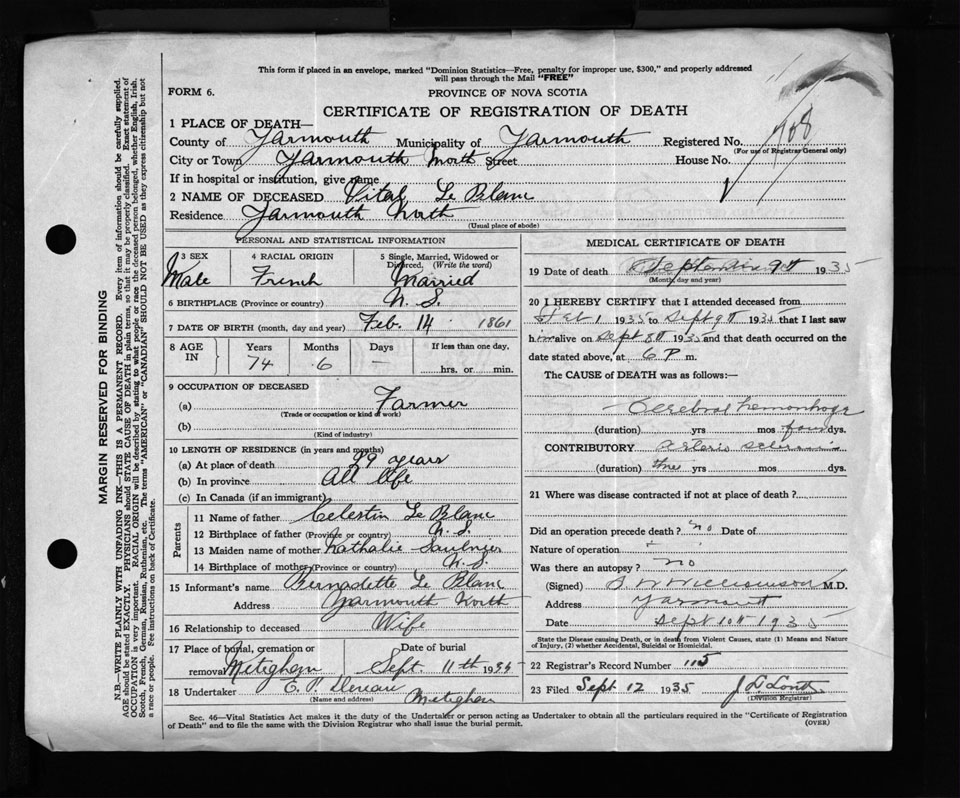 This form if placed in an envelope, marked "Dominion Statistics—Free, penalty for improper use, $300," and properly addressed
will pass through the Mail "FREE"
FORM 6.
PROVINCE OF NOVA SCOTIA
CERTIFICATE OF REGISTRATION OF DEATH
1 PLACE OF DEATH—
County of Yarmouth Municipality of Yarmouth Registered No. 708
(For use of Registrar General only)
City or Town Yarmouth North Street House No.
If in hospital or institution, give name
2 NAME OF DECEASED Vital Le Blanc
Residence Yarmouth North
(Usual place of abode)
PERSONAL AND STATISTICAL INFORMATION
3 SEX Male
4 RACIAL ORIGIN French
5 Single, Married, Widowed or
Divorced, (Write the word)
Married
6 BIRTHPLACE (Province or country) N. S.
7 DATE OF BIRTH (month, day and year) Feb. 14 1861
8 AGE IN
Years 74
Months 6
Days —
If less than one day,
hrs. or min.
9 OCCUPATION OF DECEASED
(a) Farmer
(Trade or occupation or kind of work)
(b)
(Kind of industry)
10 LENGTH OF RESIDENCE (in years and months)
(a) At place of death years
(b) In province All life
(c) In Canada (if an immigrant)
Parents
11 Name of father Celestin Le Blanc
12 Birthplace of father (Province or country) N. S.
13 Maiden name of mother Nathalie Saulnier
14 Birthplace of mother (Province or country) N. S.
15 Informant's name Bernadette Le Blanc
Address Yarmouth North
16 Relationship to deceased Wife
17 Place of burial, cremation or
removal Meteghan
Date of burial
Sept. 11th 1935
18 Undertaker E. P. Meteghan
(Name and address)
MEDICAL CERTIFICATE OF DEATH
19 Date of death September 9th 1935
(Month, day and year)
20 I HEREBY CERTIFY that I attended deceased from
Feb 1 1935 to Sept 9th 1935 that I last saw
him alive on Sept 8th 1935 and that death occurred on the
date stated above, at 6 P m.
The CAUSE of DEATH was as follows:—
Cerebral hemorrhage
(duration) yrs mos four dys.
CONTRIBUTORY Arterio sclerosis
(duration) yrs mos dys.
21 Where was disease contracted if not at place of death?
Did an operation precede death? no Date of
Nature of operation
Was there an autopsy? No
(Signed) Williamson M.D.
Address Yarmouth
Date Sept 10th 1935
State the Disease causing Death, or in death from Violent Causes, state (1) Means and Nature
of Injury, (2) whether Accidental, Suicidal or Homicidal.
22 Registrar's Record Number 115
23 Filed Sept 12 1935
(Division Registrar)
Sec. 46—Vital Statistics Act makes it the duty of the Undertaker or person acting as Undertaker to obtain all the particulars required in the "Certificate of Registration
of Death" and to file the same with the Division Registrar who shall issue the burial permit.
(OVER)
MARGIN RESERVED FOR BINDING
N.B.—WRITE PLAINLY WITH UNFADING INK—THIS IS A PERMANENT RECORD. Every item of information should be carefully supplied.
AGE should be stated EXACTLY. PHYSICIANS should STATE CAUSE OF DEATH in plain terms, so that it may be properly classified. Exact statement of
OCCUPATION is very important. RACIAL ORIGIN will be described by stating to what people or race the deceased person belonged, whether English, Irish,
Scotch, French, German, Russian, Ruthenian, etc. The terms "AMERICAN" or "CANADIAN" SHOULD NOT BE USED as they express citizenship but not
a race or people. See instructions on back of Certificate.